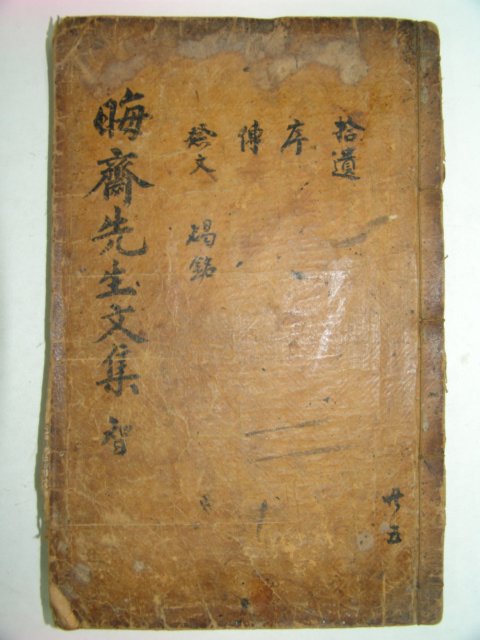 拾遺
共五
序
傳
祭文 碣銘
晦齋先生文集 智